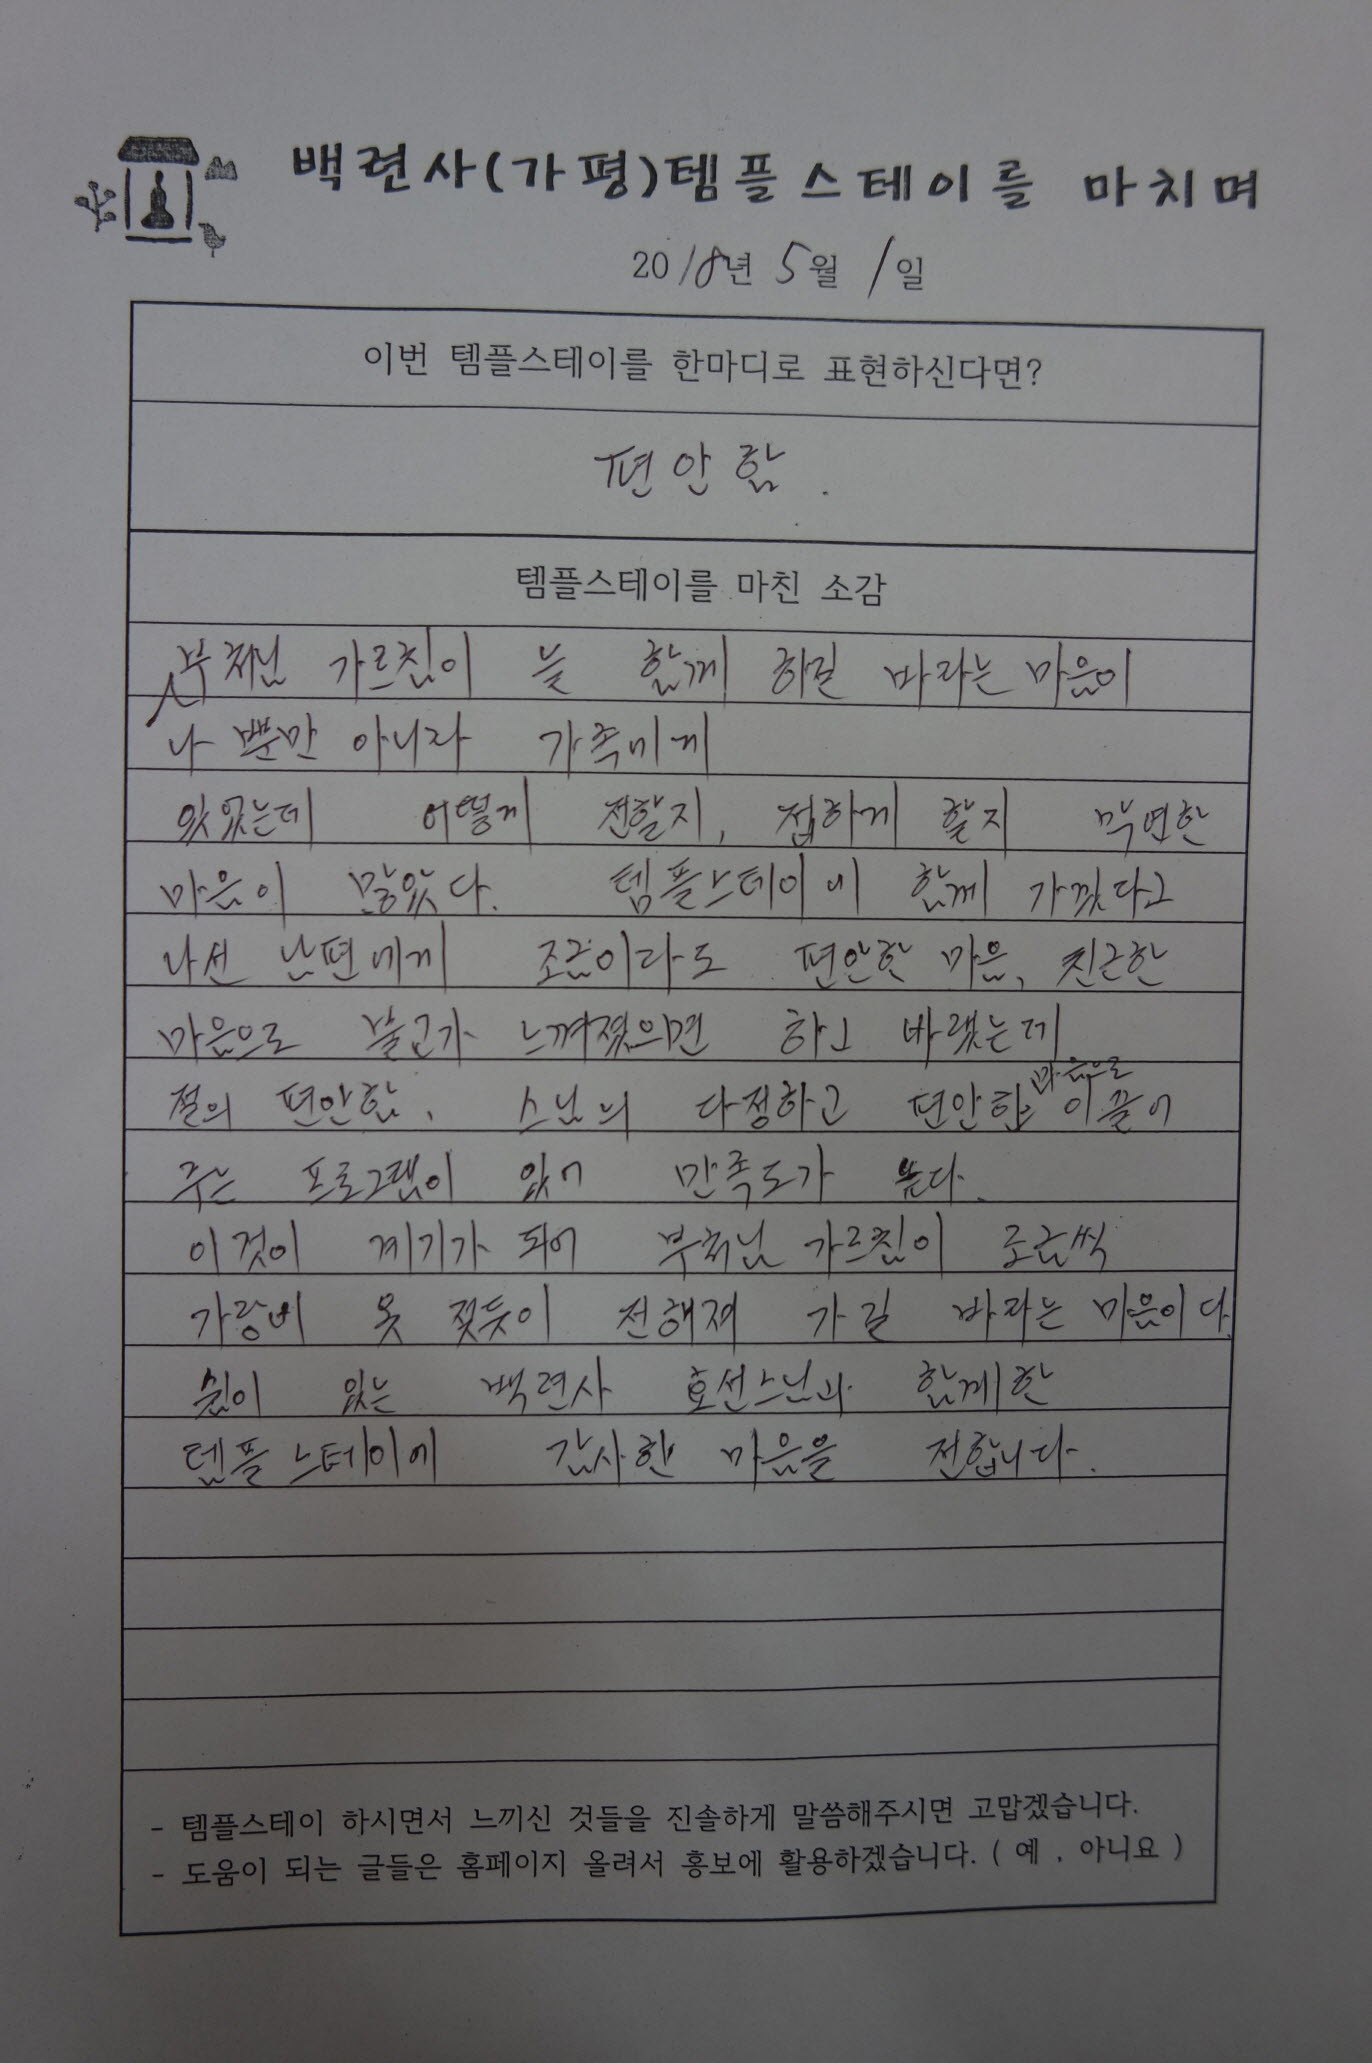 백련사(가평)템플스테이를 마치며
2018년 5월 1일
이번 템플스테이를 한마디로 표현하신다면?
편안함.
템플스테이를 마친 소감
부처님 가르침이 늘 함께 하길 바라는 마음이
나 뿐만 아니라 가족에게
있었는데 어떻게 전할지, 접하게 할지 막연한
마음이 많았다. 템플스테이에 함께 가겠다고
나선 남편에게 조금이라도 편안한 마음, 친근한
마음으로 불교가 느껴졌으면 하고 바랬는데
절의 편안함, 스님의 다정하고 편안한 마음으로 이끌어
주는 프로그램이 있어 만족도가 높다.
이것이 계기가 되어 부처님 가르침이 조금씩
가랑비 옷 젖듯이 전해져 가길 바라는 마음이다.
쉼이 있는 백련사 효선스님과 함께한
템플스테이에 감사한 마음을 전합니다.
- 템플스테이 하시면서 느끼신 것들을 진솔하게 말씀해주시면 고맙겠습니다.
- 도움이 되는 글들은 홈페이지 올려서 홍보에 활용하겠습니다. ( 예 , 아니요 )